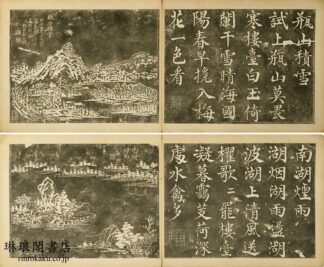 瓶山積雪
試上瓶山莫畏
寒樓臺白玉倚
闌干雪晴海國
陽春早攙入梅
花一色看
南湖煙雨
湖烟湖雨盪湖
波湖上清風送
櫂歌歌罷樓臺
凝暮靄芰荷深
處水禽多
琳琅閣書店
rinrokaku.co.jp